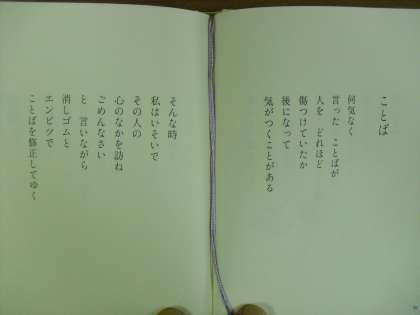 ことば
何気なく
言った ことばが
人を どれほど
傷つけていたか
後になって
気がつくことがある
そんな時
私はいそいで
その人の
心のなかを訪ね
ごめんなさい
と 言いながら
消しゴムと
エンピツで
ことばを修正してゆく